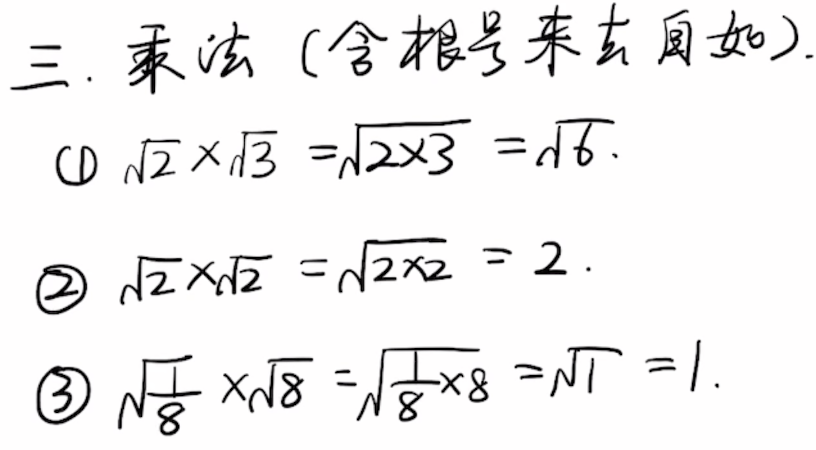 三.乘法(含根号来去自如).
① √2×√3=√(2×3)=√6.
② √2×√2=√(2×2)=2.
③ √(1/8)×√8=√(1/8×8)=√1=1.